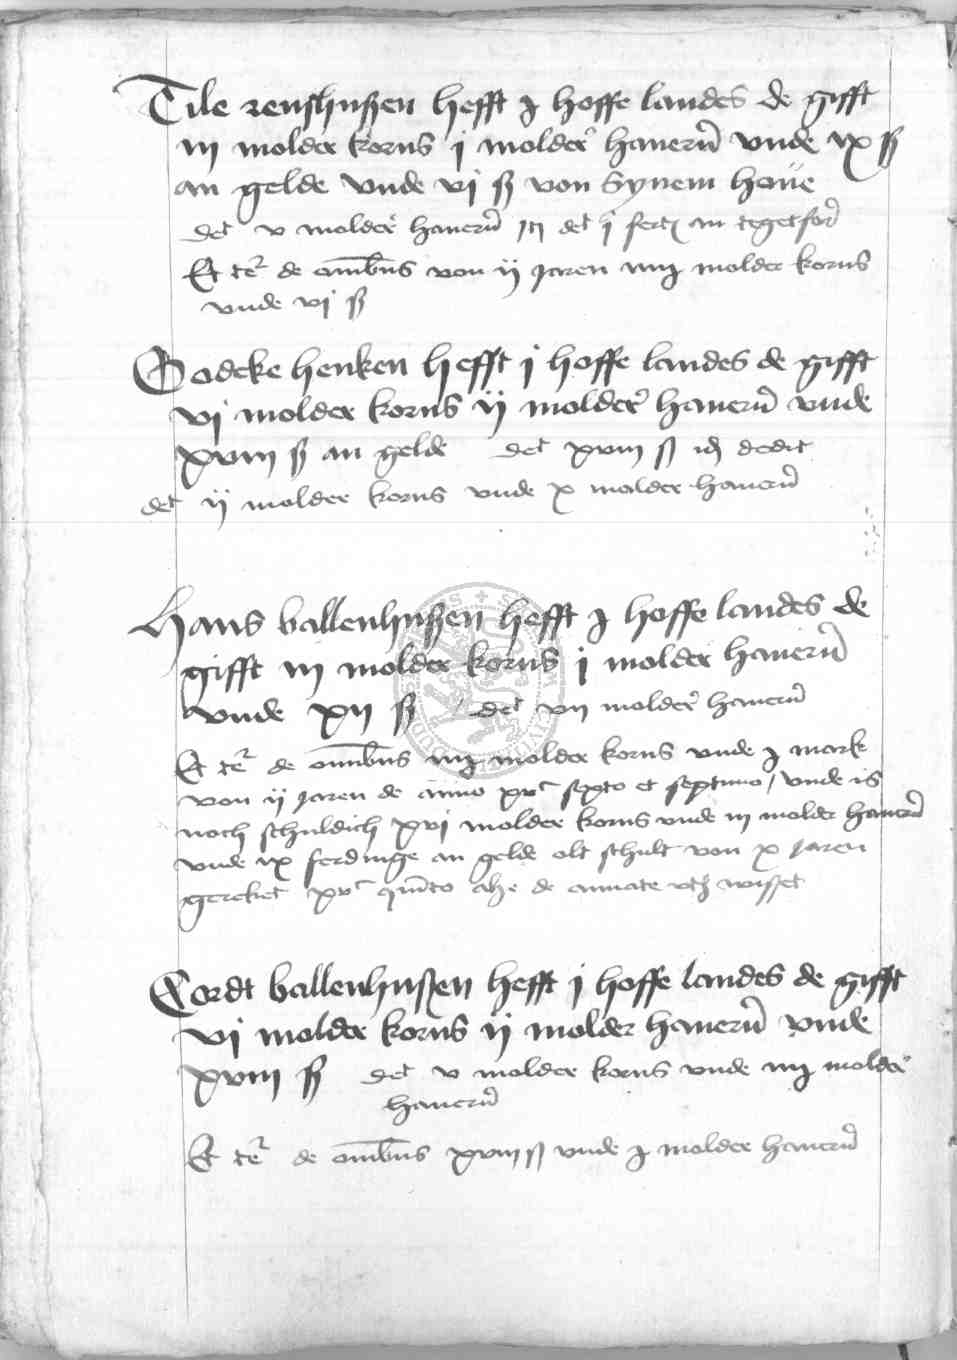 Tile renshußen hefft j hoffe landes de gifft
iij molder korns j molder haueru vnde ix ß
an gelde vnde vj ß von synem houe
det v molder haueru Jtj det j fert an tegetfor
Et te de omibus von ij jaren iiij molder korns
vnde vj ß
Godeke henken hefft j hoffe landes de gifft
vj molder korns ij molder haueru vnde
xviij ß an gelde det xviij ß id dedit
det ij molder korns vnde x molder haueru
Hans ballenhußen hefft j hoffe landes de
gifft iij molder korns j molder haueru
vnde xij ß det vij molder haueru
Et te de omibus iiij molder korns vnde j mark
von ij jaren de anno xvc sexto et septimo / vnde is
noch schuldich xvj molder korns vnde iij molder haueru
vnde ix ferdinge an gelde olt schult von x jaren
gereket xvc quinto alze de annate vth wisset
Cordt ballenhußen hefft j hoffe landes de gifft
vj molder korns ij molder haueru vnde
xviij ß det v molder korns vnde iiij molder
haueru
Et te de omibus xviij ß vnde j molder haueru